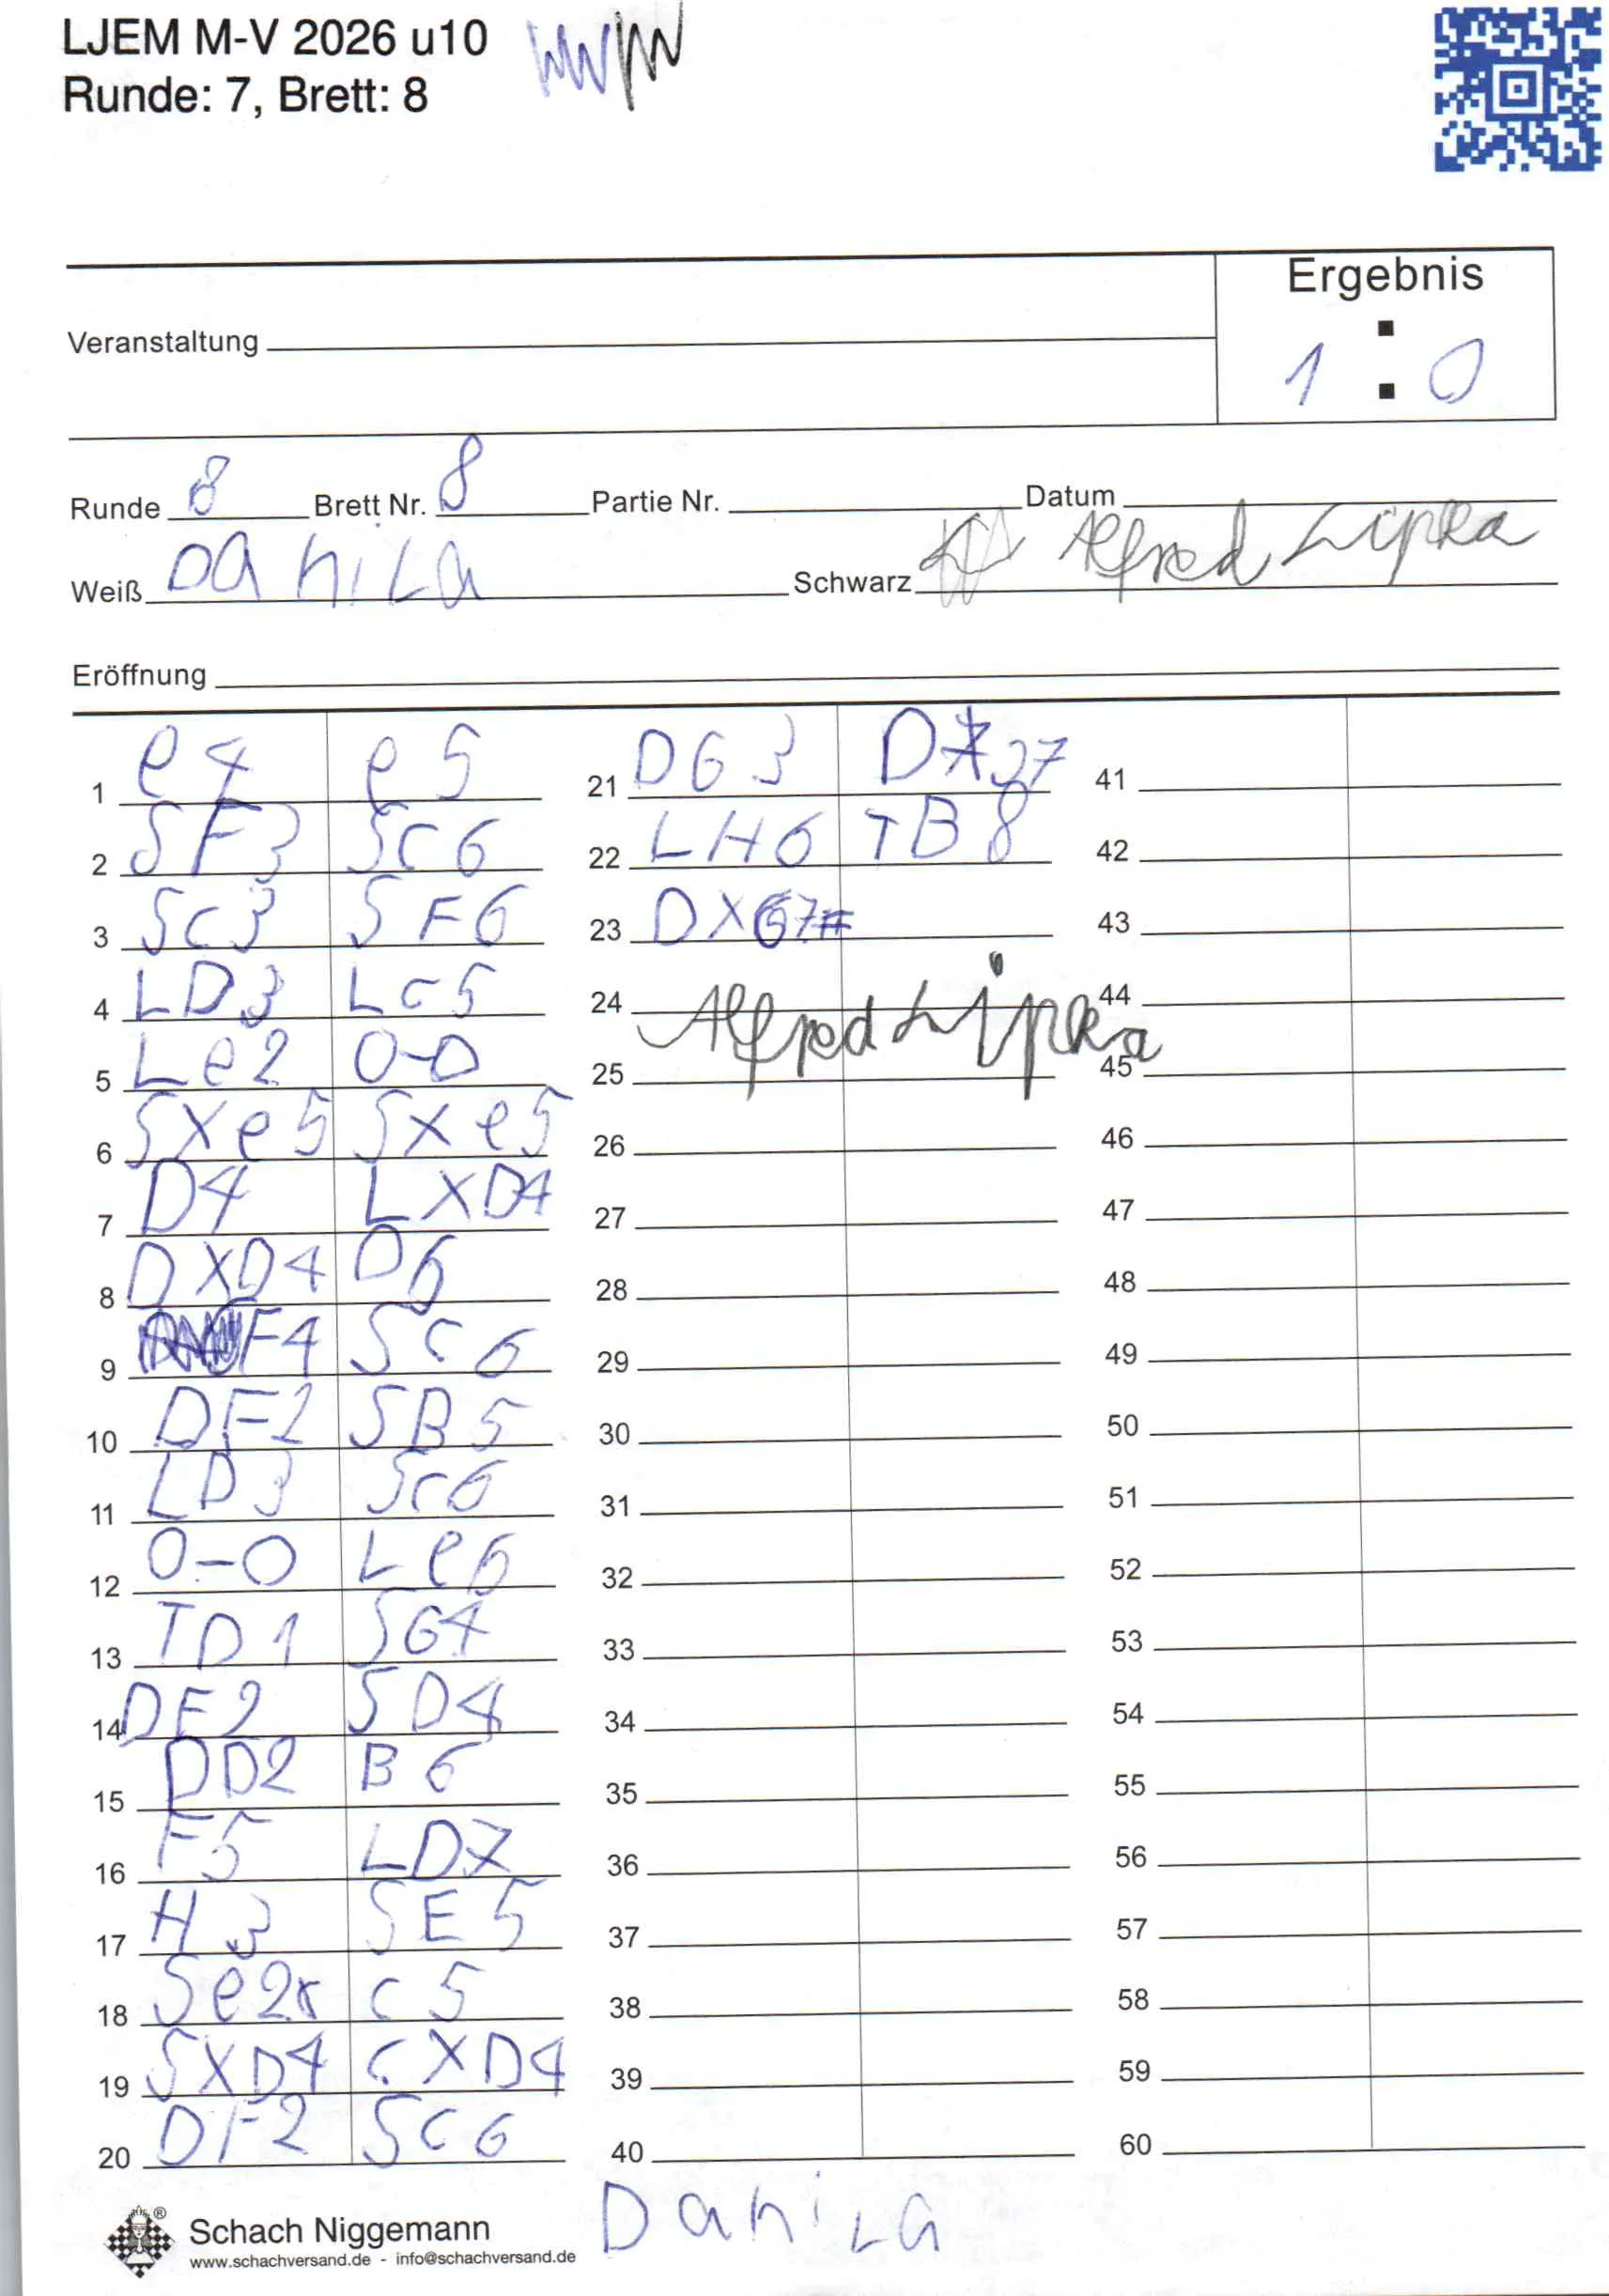 LJEM M-V 2026 u10
Runde: 7, Brett: 8
Ergebnis
Veranstaltung
1 : 0
Runde 8 Brett Nr. 8 Partie Nr. Datum
Weiß Danila Schwarz Alfred Lipka
Eröffnung
1 e4 e5 21 DG3 41
2 SF3 Sc6 22 LH6 TB8 42
3 Sc3 SF6 23 DXG7# 43
4 LD3 Lc5 24 44
Alfred Lipka
5 Le2 0-0 25 45
6 SXe5 SXe5 26 46
7 D4 LXD4 27 47
8 DXD4 D6 28 48
9 F4 Sc6 29 49
10 DF2 SB5 30 50
11 LD3 Sc6 31 51
12 0-0 Le6 32 52
13 TD1 SG4 33 53
14 DF2 SD4 34 54
15 DD2 B6 35 55
16 F5 LD7 36 56
17 H3 SE5 37 57
18 Se2 c5 38 58
19 SXD4 cXD4 39 59
20 DF2 Sc6 40 60
Schach Niggemann
www.schachversand.de - info@schachversand.de
Danila